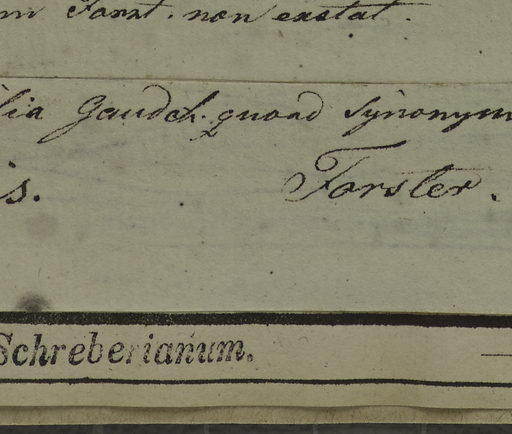 m Forst. non exstat.
lia Gaudch. quoad synonym
is. Forster.
Schreberianum.